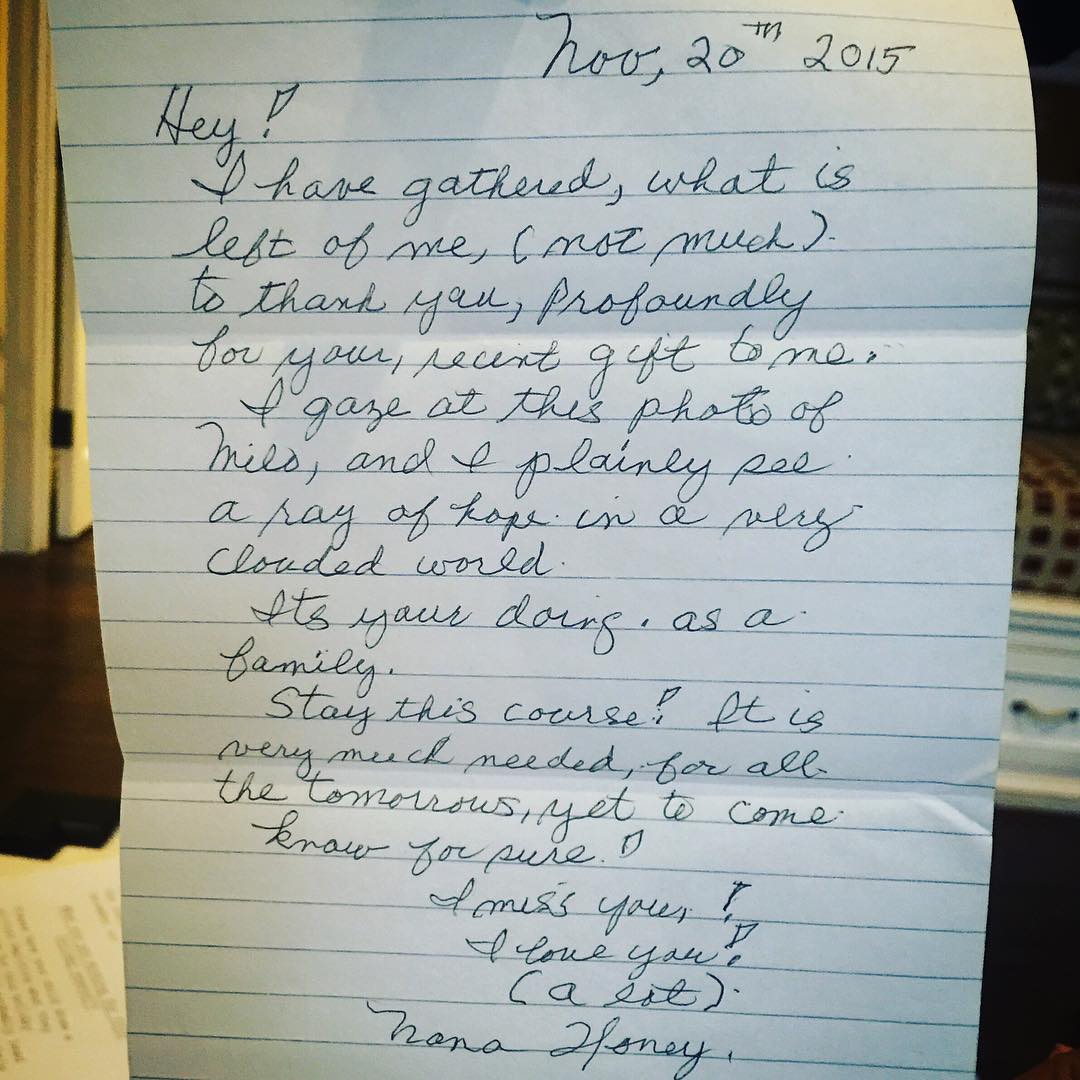 Nov, 20th 2015
Hey!
I have gathered, what is
left of me, (not much).
to thank you, profoundly
for your, recent gift to me.
I gaze at this photo of
Milo, and I plainly see
a ray of hope in a very
clouded world.
Its your doing. as a
family.
Stay this course! It is
very much needed, for all
the tomorrows, yet to come
know for sure.!
I miss you, !
I love you!
(a lot).
Nana Honey.